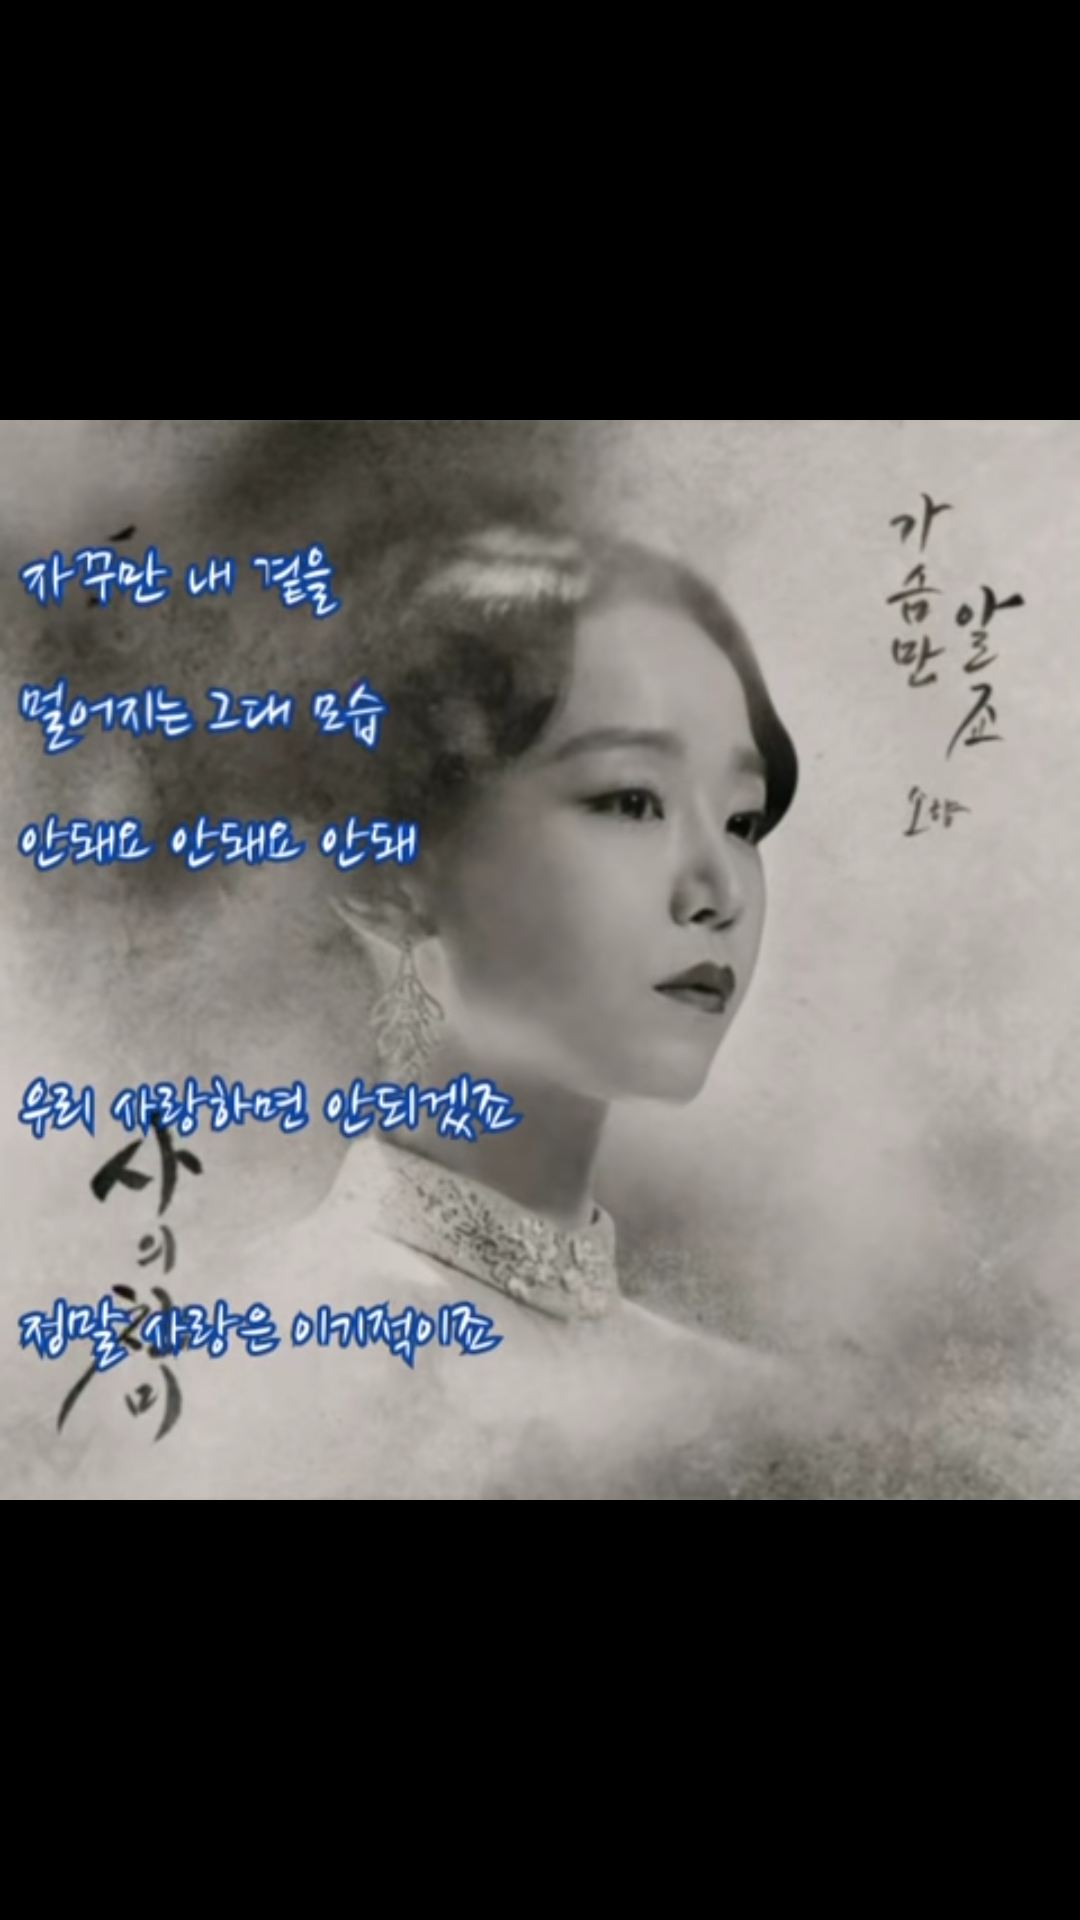 가슴만
알죠
소향
자꾸만 내 곁을
멀어지는 그대 모습
안돼요 안돼요 안돼
우리 사랑하면 안되겠죠
정말 사랑은 이기적이죠
사의찬미